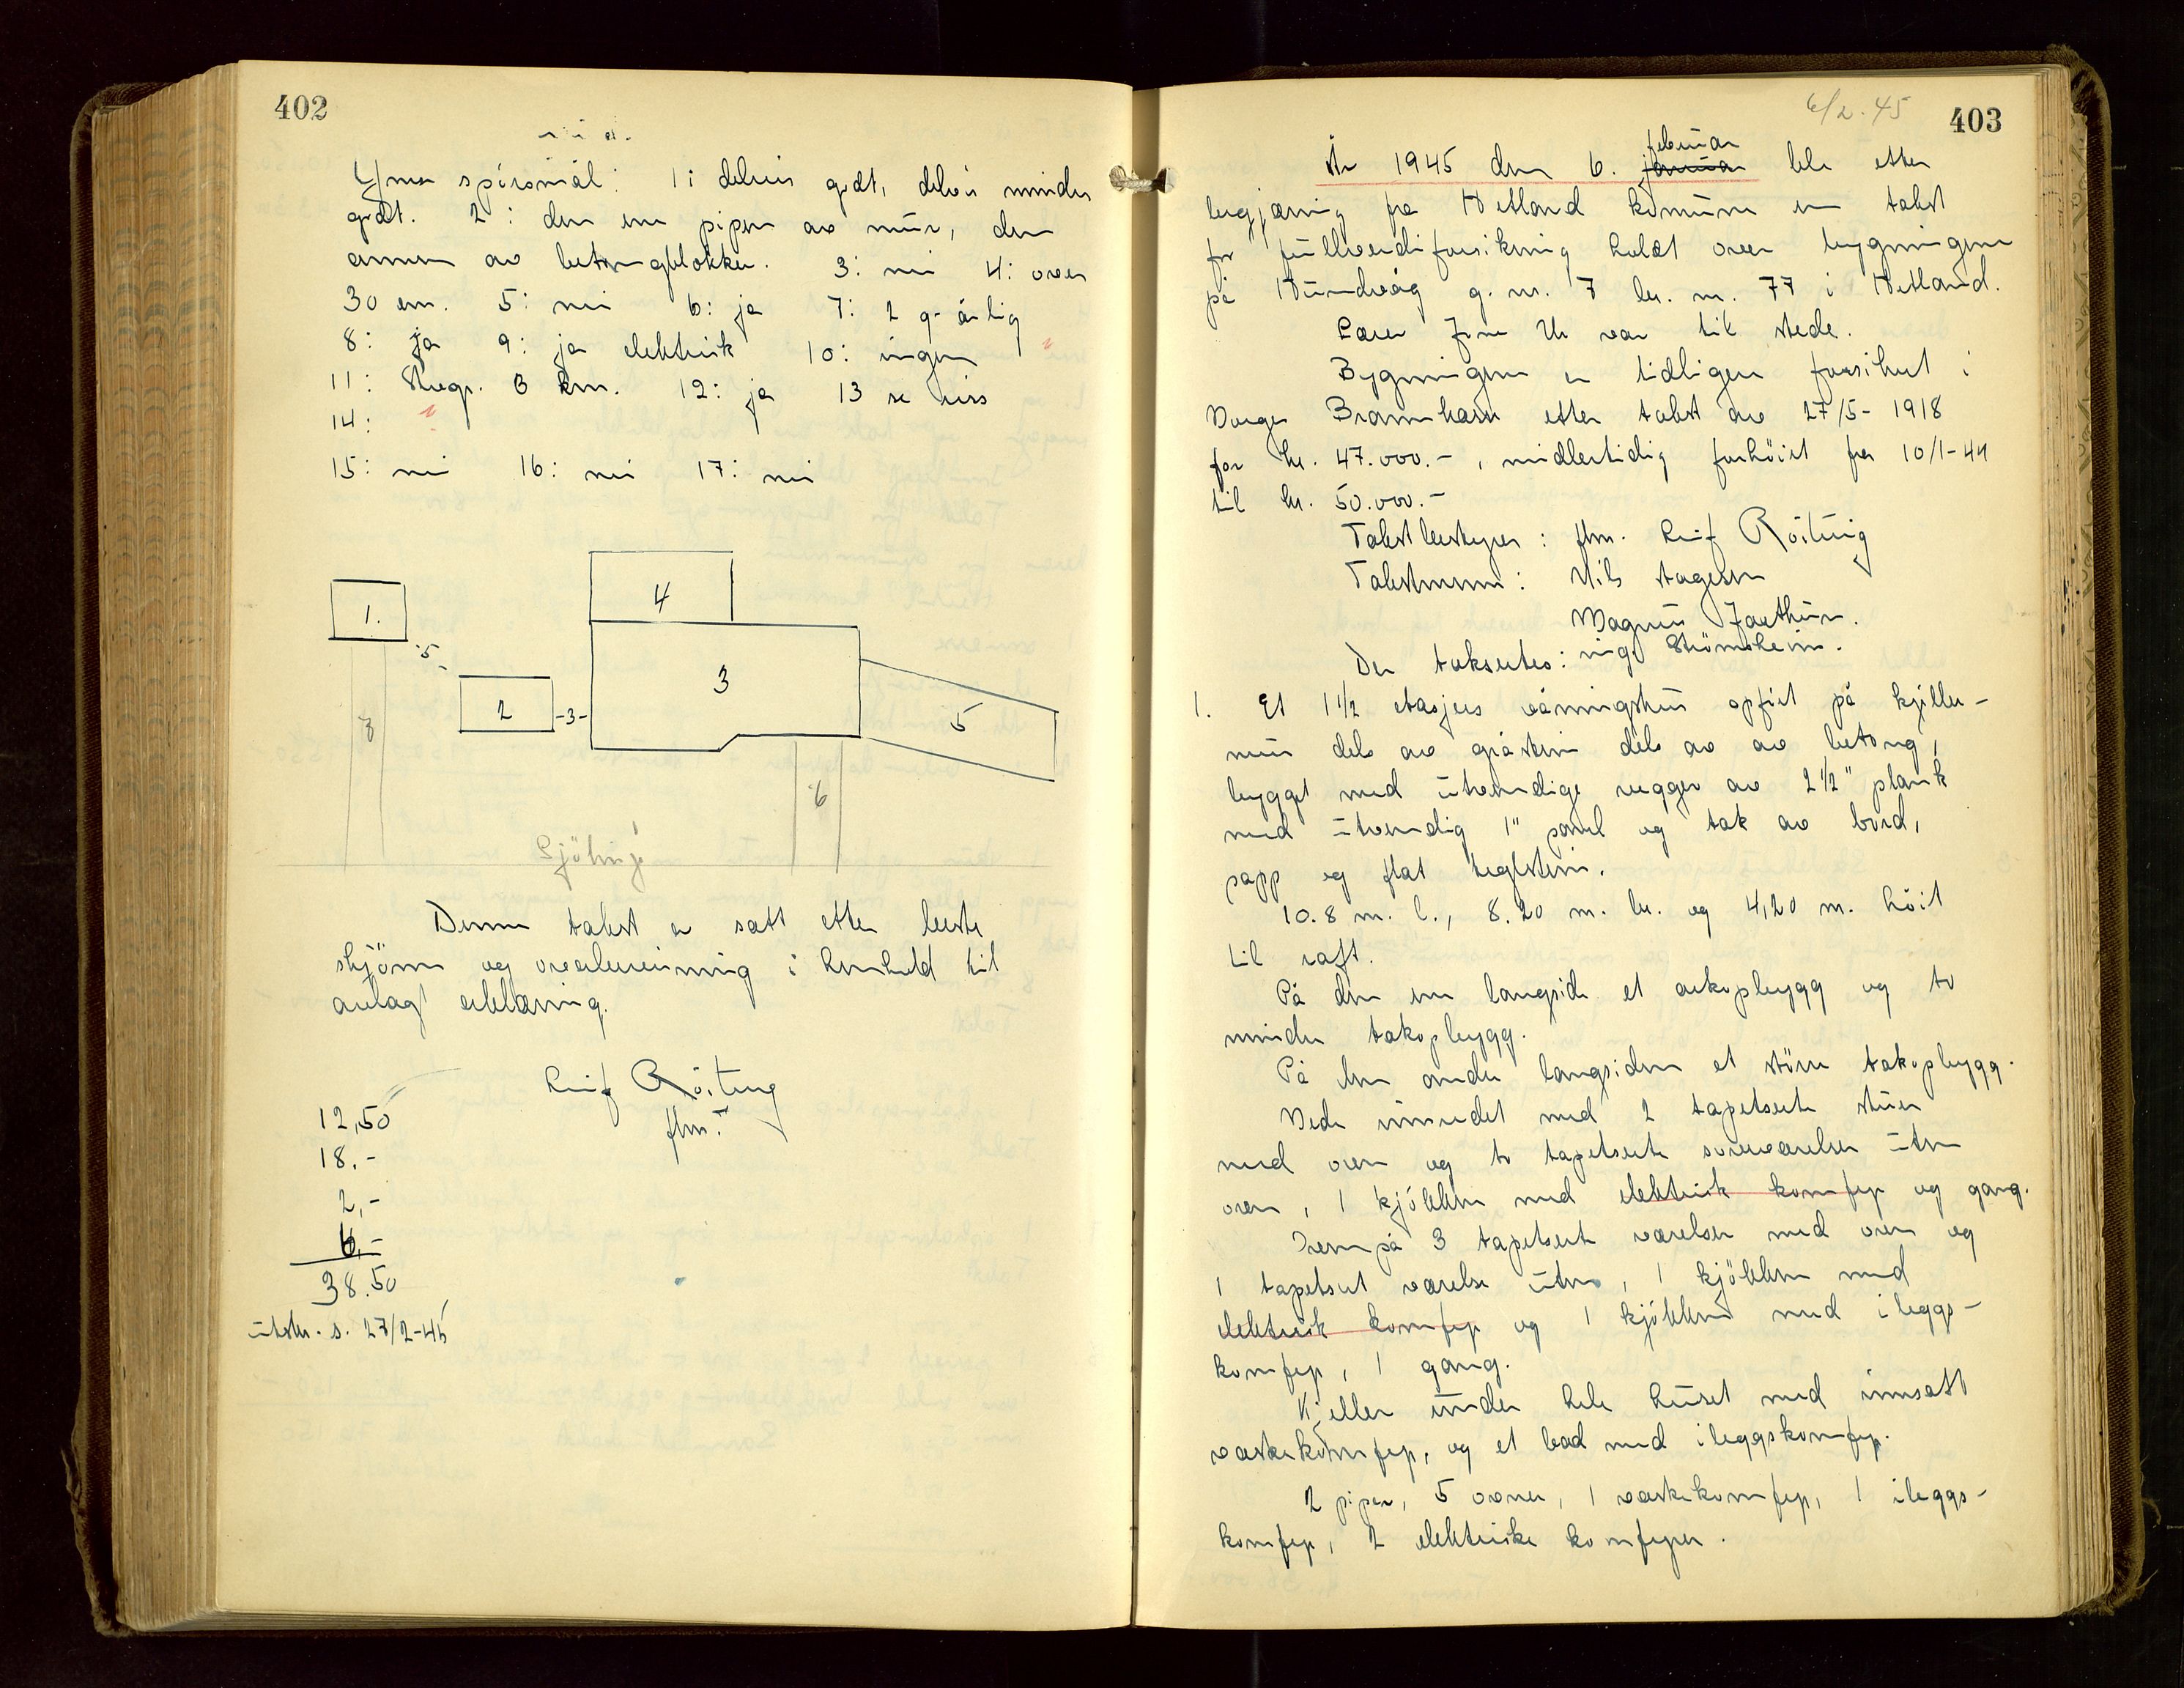 402
Ymse spörsmål: 1: delvis godt, delvis mindre
godt. 2: den ene pipen av mur, den
annen av betongblokker. 3: nei 4: over
30 cm. 5: nei 6: ja 7: 2 g. årlig
8: ja 9: ja elektrisk 10: ingen
11: Stvgr. 3 km. 12: ja 13 se riss
14:
15: nei 16: nei 17: nei
1.
4
5
2
-3-
3
5
8
6
Sjölinje
Denne takst er satt etter beste
skjönn og overbevisning i henhold til
avlagt erklæring.
Leif Röitung
flm.
12,50
18.-
2,-
6,-
38.50
utskr. s. 27/2-45
6/2.45
403
År 1945 den 6. januar februar ble etter
begjæring fra Hetland komune en takst
for fullverdiforsikring holdt over bygningene
på Hundvåg g. nr. 7 br. nr. 77 i Hetland.
Lærer var til stede.
Bygningene er tidligere forsikret i
Norges Brannkasse etter takst av 27/5-1918
for kr. 47.000.-, midlertidig forhöiet fra 10/1-44
til kr. 50.000.-
Takstbestyrer: flm. Leif Röitung
Takstmenn: Nils Aagesen
Magnus Jaathun.
Der takseres: ing. Strömsheim.
1. Et 1 1/2 etasjes våningshus opfört på kjeller-
mur dels av gråstein dels av av betong,
bygget med utvendige vegger av 2 1/2" plank
med utvendig 1" panel og tak av bord,
papp og flat teglstein.
10.8 m. l., 8.20 m. br. og 4,20 m. höit
til raft.
På den ene langside et arkopbygg og to
mindre takopbygg.
På den andre langsiden et större takopbygg.
Nede innredet med 2 tapetserte stuer
med ovn og to tapetserte soveværelser uten
ovn, 1 kjökken med elektrisk komfyr og gang.
Ovenpå 3 tapetserte værelser med ovn og
1 tapetsert værelse uten, 1 kjökken med
elektrisk komfyr og 1 kjökken med ileggs-
komfyr, 1 gang.
Kjeller under hele huset med innsatt
vaskekomfyr, og et bad med ileggskomfyr.
2 piper, 5 ovner, 1 vaskekomfyr, 1 ileggs-
komfyr, 2 elektriske komfyrer.